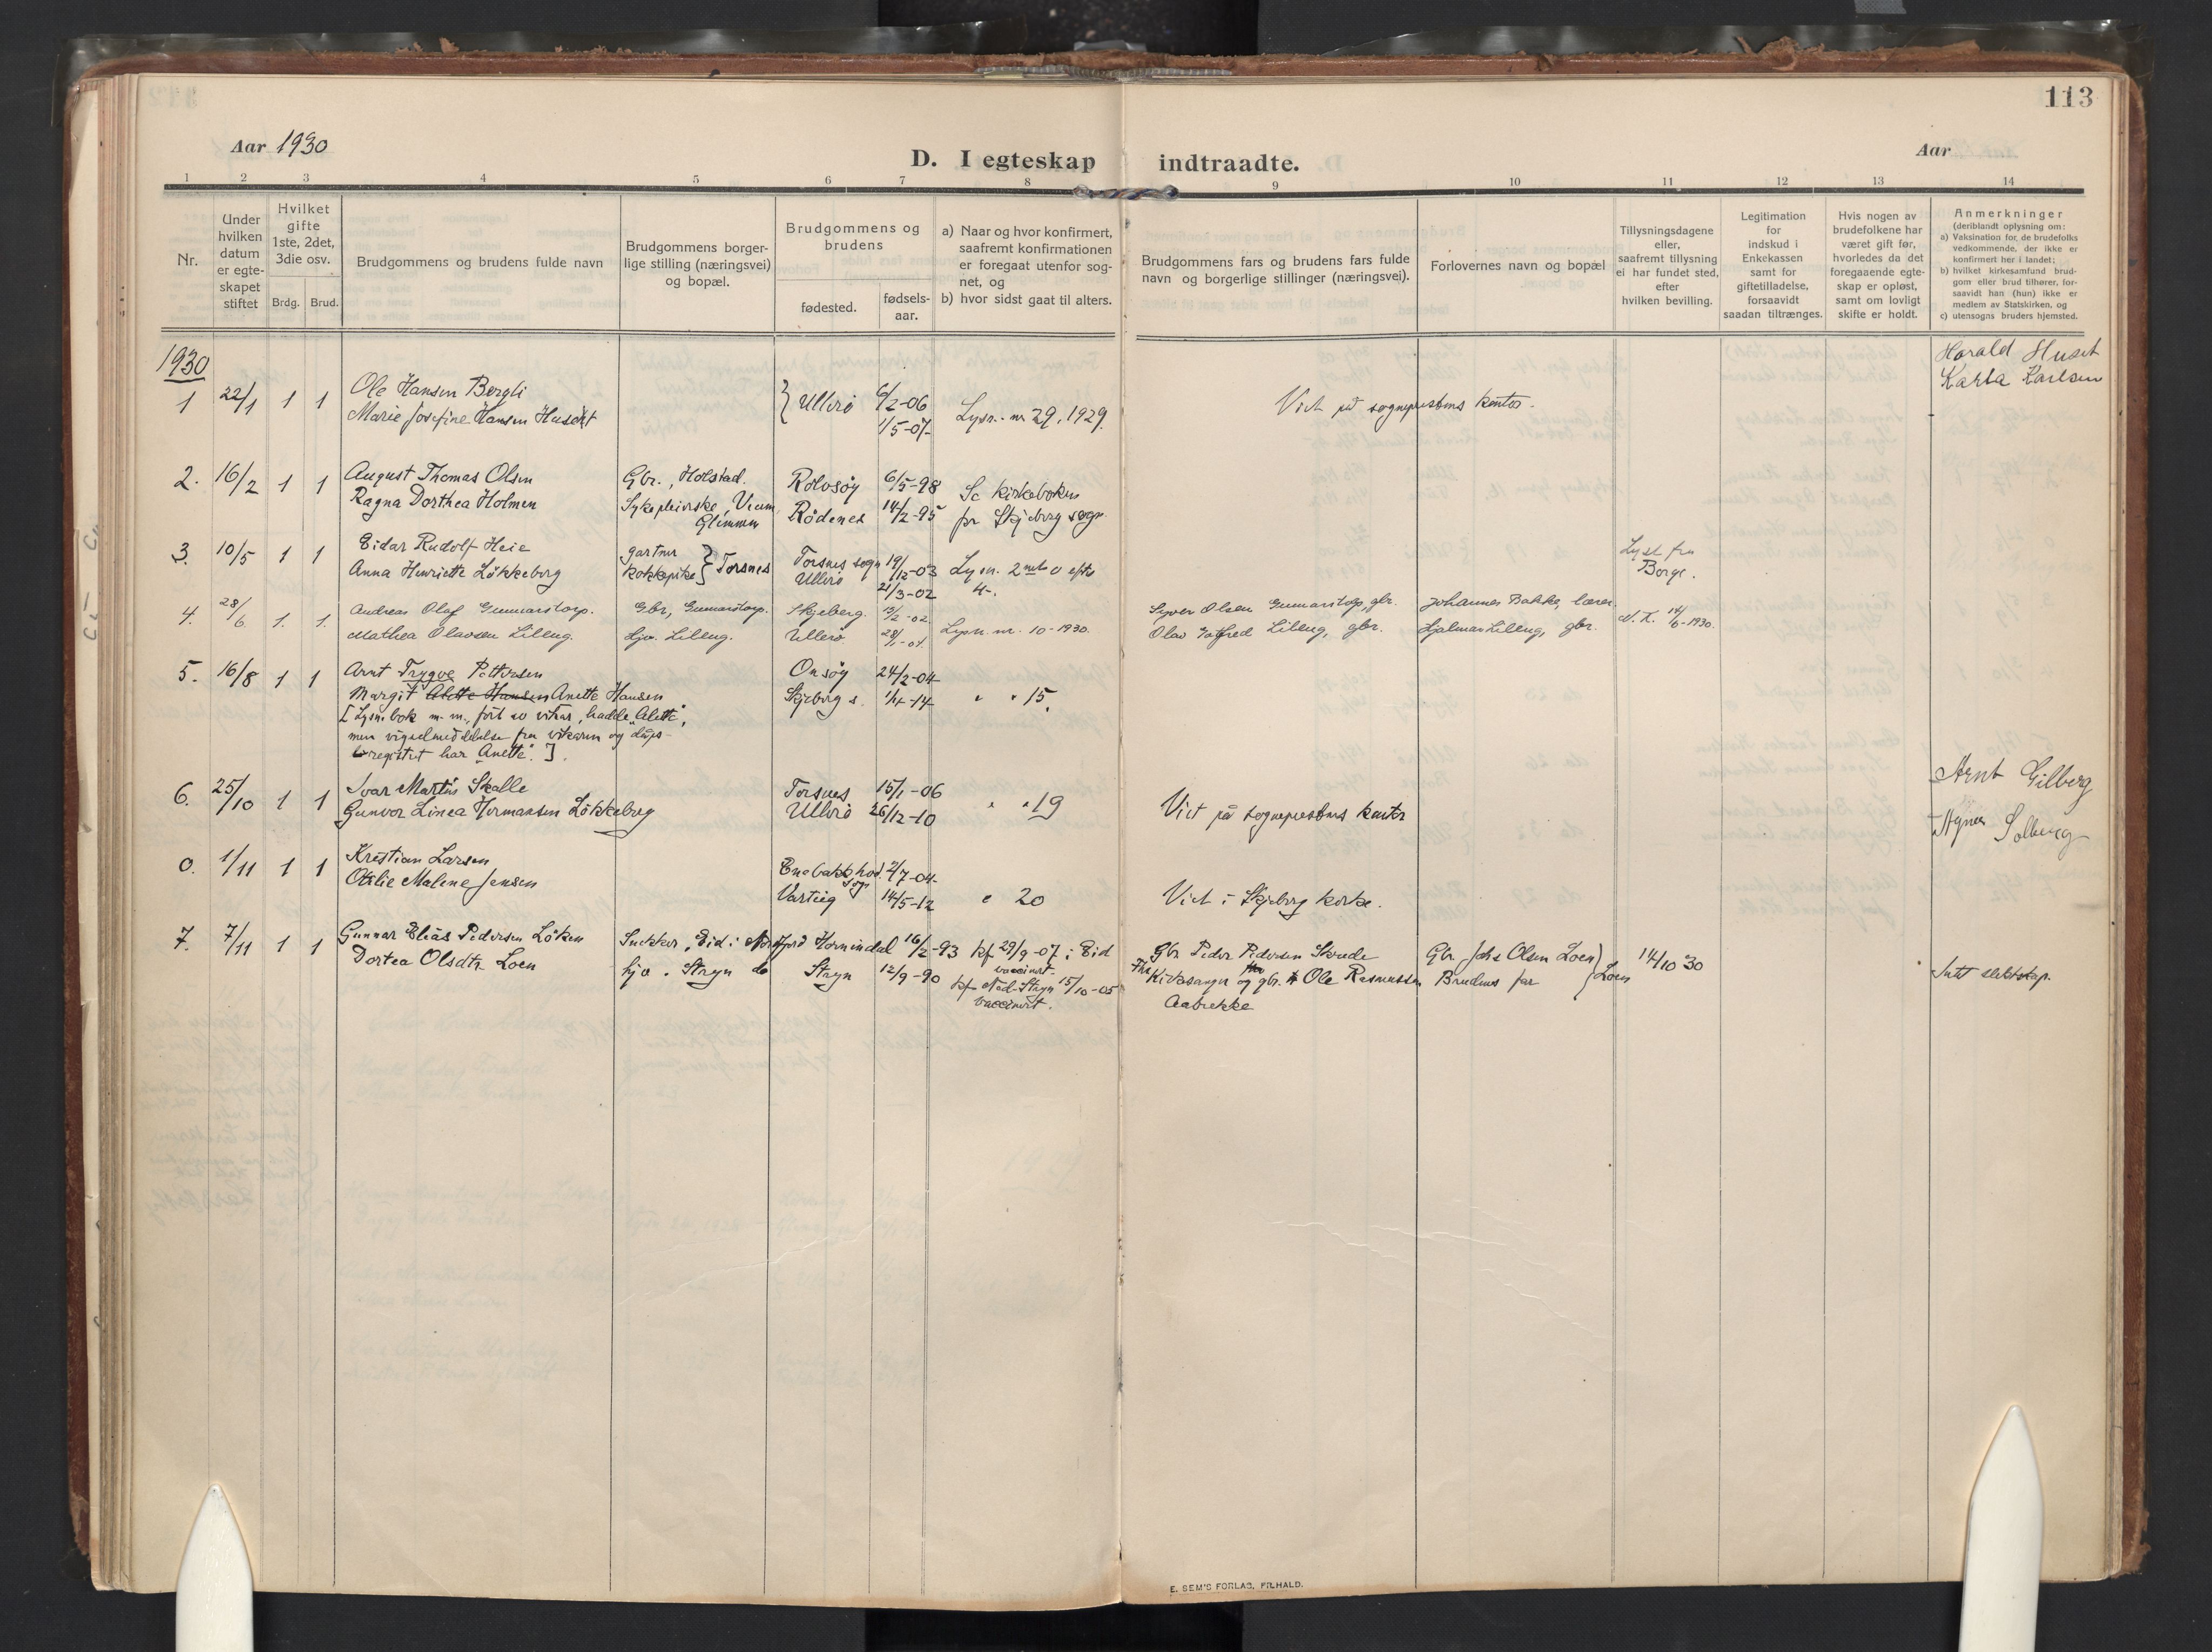 113
Aar 1930
D. I egteskap indtraadte.
Aar
1 2 3 4 5 6 7 8 9 10 11 12 13 14
Nr.
Under hvilken datum er egteskapet stiftet
Hvilket gifte 1ste, 2det, 3die osv.
Brdg. Brud.
Brudgommens og brudens fulde navn
Brudgommens borgerlige stilling (næringsvei) og bopæl.
Brudgommens og brudens
fødested.
fødselsaar.
a) Naar og hvor konfirmert, saafremt konfirmationen er foregaat utenfor sognet, og
b) hvor sidst gaat til alters.
Brudgommens fars og brudens fars fulde navn og borgerlige stillinger (næringsvei).
Forlovernes navn og bopæl
Tillysningsdagene eller, saafremt tillysning ei har fundet sted, efter hvilken bevilling.
Legitimation for indskud i Enkekassen samt for giftetilladelse, forsaavidt saadan tiltrænges.
Hvis nogen av brudefolkene har været gift før, hvorledes da det foregaaende egteskap er opløst, samt om lovligt skifte er holdt.
Anmerkninger
(deriblandt oplysning om:
a) Vaksination for de brudefolks vedkommende, der ikke er konfirmert her i landet;
b) hvilket kirkesamfund brudgom eller brud tilhører, forsaavidt han (hun) ikke er medlem av Statskirken, og
c) utensogns bruders hjemsted.
1930
1 22/1 1 1 Ole Hansen Bergli } Ullerö 6/2-06 Lysn. nr 29, 1929. Viet på sogneprestens kontor. Harald Huset
Marie Josefine Hansen Huset 1/5-07 Karla Karlsen
2. 16/2 1 1 August Thomas Olsen Gbr., Holstad. Rolvsöy 6/5-98 Se kirkeboken
Ragna Dorthea Holmen Sykepleierske, Veum Glemmen Rödenes 14/2-95 for Skjeberg sogn
3. 10/5 1 1 Eidar Rudolf Heie gartner } Torsnes Torsnes sogn 19/12-03 Lysn. 2 efter Lyst fra
Anna Henriette Lökkeberg kokkepike Ullerö 21/3-02 4. Borge.
4. 28/6 1. 1. Andreas Olaf Gunnarstorp. Gbr, Gunnarstorp. Skjeberg. 13/2-02 Lysn. nr. 10-1930. Syver Olsen Gunnarstorp, gbr. Johannes Bakke, lærer N.T. 14/6-1930.
Mathea Olavsen Lilleng. Hjv. Lilleng. Ullerö 28/1-01. Olav Gotfred Lilleng, gbr. Hjalmar Lilleng, gbr.
5. 16/8 1 1 Arnt Trygve Pettersen Onsöy 24/2-04
Margit Alette Hansen Anette Hansen Skjeberg s. 1/4-14 " " 15.
[Lysn.bok m. m., fört av vikar, hadde "Alette",
men vigselmeddelelse fra vikaren og dåps-
registret har "Anette".].
6. 25/10 1 1 Ivar Martin Skalle Torsnes 15/1-06 " " 19 Viet på sogneprestens kontor Arnt Gilberg
Gunvor Linea Hermansen Lökkeberg Ullerö 26/12-10 Agnes Solberg
0. 1/11 1 1 Kristian Larsen Enebakk hovedsogn 2/7-04
Otilie Malene Jensen Varteig 14/5-12 " 20 Viet i Skjeberg kirke.
7. 7/11 1 1 Gunnar Elias Pedersen Löken Snekker, Eid i Nordfjord Hornindal 16/2-93 kf 29/9-07 i Eid vaccinert. Gbr Peder Pedersen Gbr Johs Olsen Loen } Loen 14/10 30
Dortea Olsdtr. Loen hjv. Stryn do Stryn 12/9-90 kf Ned-Stryn 15/10-05 vaccinert. Kirkesanger og gbr. Ole Rasmussen Aabrekke Brudens far Intet slektskap.
E. SEM'S FORLAG, FR.HALD.